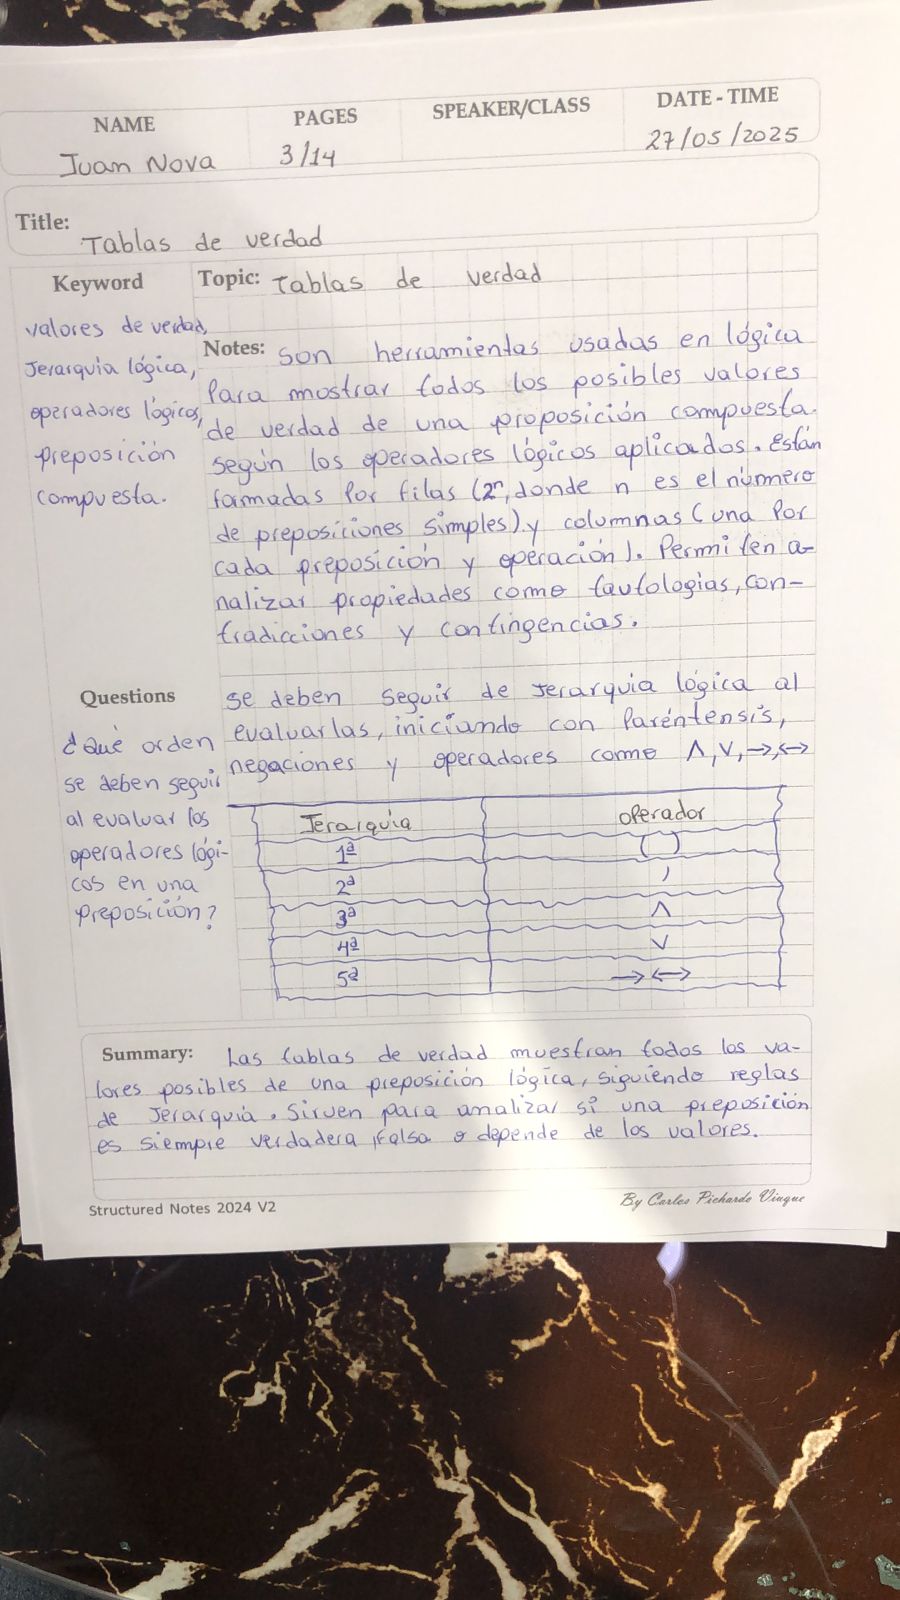 NAME PAGES SPEAKER/CLASS DATE - TIME
Juan Nova 3/14 27/05/2025
Title: Tablas de verdad
Keyword
valores de verdad,
Jerarquía lógica,
operadores lógicos,
preposición
compuesta.
Topic: Tablas de verdad
Notes: Son herramientas usadas en lógica
Para mostrar todos los posibles valores
de verdad de una proposición compuesta.
según los operadores lógicos aplicados. Están
formadas Por filas (2ⁿ, donde n es el número
de preposiciones simples) y columnas (una Por
cada preposición y operación). Permiten a-
nalizar propiedades como tautologías, con-
tradicciones y contingencias.
Questions
¿Qué orden
se deben seguir
al evaluar los
operadores lógi-
cos en una
preposición?
se deben seguir de Jerarquía lógica al
evaluarlas, iniciando con Paréntensis,
negaciones y operadores como ∧, ∨, →, ↔
Jerarquía operador
1ª ( )
2ª ′
3ª ∧
4ª ∨
5ª → ↔
Summary: Las tablas de verdad muestran todos los va-
lores posibles de una preposición lógica, siguiendo reglas
de Jerarquía. Sirven para analizar si una preposición
es siempre verdadera, falsa o depende de los valores.
Structured Notes 2024 V2
By Carlos Pichardo Viuque